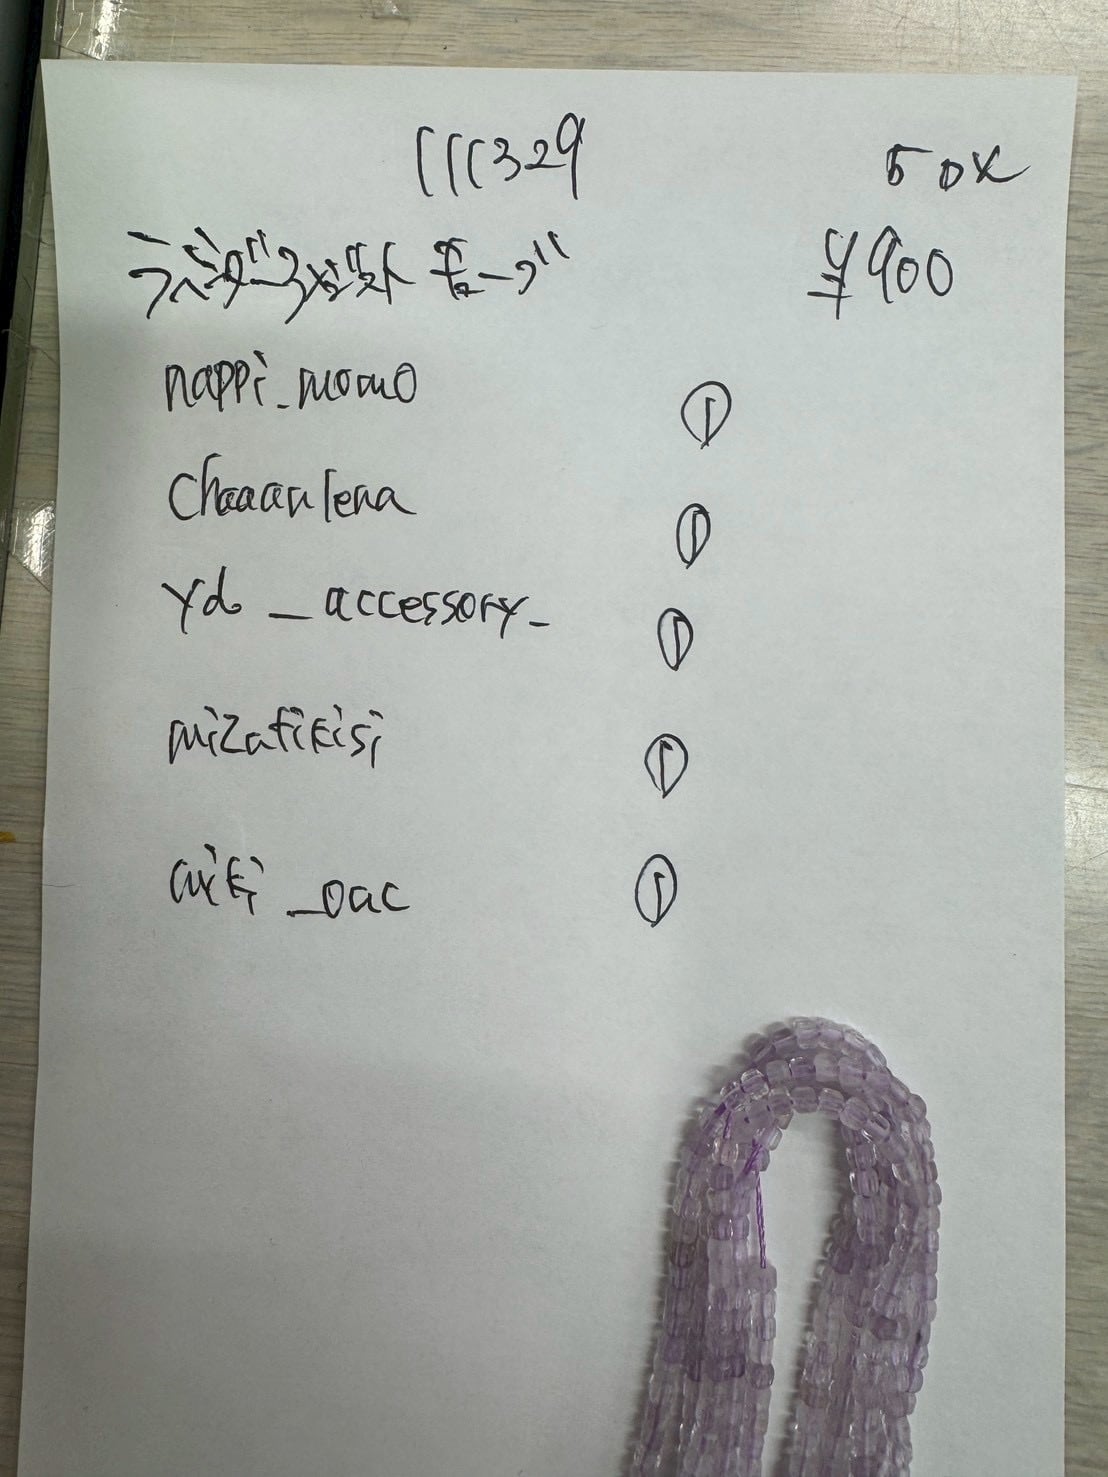 111329 50x
ラベンダーアメジスト キューブ ¥900
nappi_momo ①
chaaanlena ①
yd_accessory_ ①
mizafikisi ①
miki_oac ①